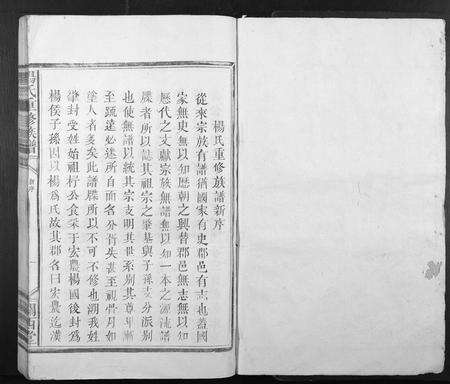 楊氏重修族譜新序
從來宗族有譜猶國家有史郡邑有志也蓋國
家無史無以知歷朝之興替郡邑無志無以知
歷代之文獻宗族無譜無以知一本之源流譜
牒者所以誌其祖宗之肇基與子孫支分派別
也使無譜以統其宗支明其世系別其尊卑漸
至疏遠必迷所自而名分倫失甚至視骨肉如
塗人者多矣此譜牒所以不可不修也溯我姓
肇封受姓始祖杼公食采于宏農楊國後封為
楊侯子孫因以楊為氏故其郡名曰宏農迄漢
楊氏重修族譜
新序
一
關西堂